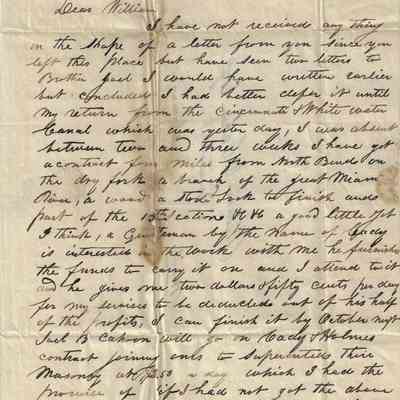 Dear William
I have not received any thing
in the shape of a letter from you since you
left this place but have seen two letters to
Brother Joel I would have written earlier
but concluded I had better defer it until
my return from the Cincinnati & White water
Canal which was yester day, I was absent
between two and three weeks I have got
a contract four miles from North Bend on
the dry fork a branch of the great Miami
River, a wood & Stone Lock to finish and
part of the 15th Section a good little Job
I think, a Gentleman by the Name of Cady
is interested in the work with me he furnishes
the funds to carry it on and I attend to it
and he gives me two dollars & fifty cents per day
for my services to be deducted out of his half
of the profits, I can finish it by October next
Joel B Cahoon will go on Cady & Holmes
contract joining ours to Superintend their
Masonry at $2.50 a day which I had the
promise of if I had not got the above